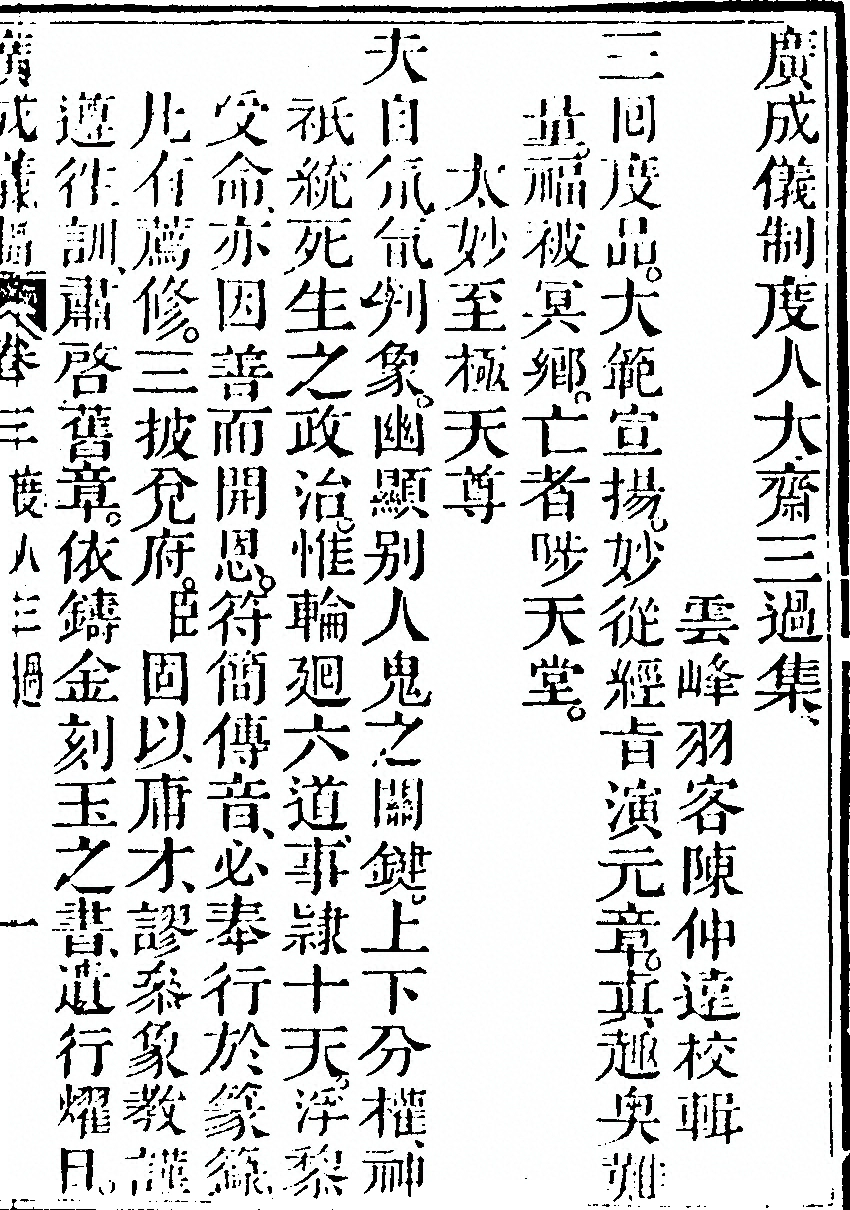 廣成儀制度人大齋三過集、
雲峰羽客陳仲遠校輯
三回度品。大範宣揚。妙從經旨演元章。真趣奧難
量。福被冥鄉。亡者陟天堂。
太妙至極天尊
夫自氛氤判象。幽顯別人鬼之關鍵。上下分權、神
祇統死生之政治。惟輪廻六道、事隸十天。淫黎
受命、亦因善而開恩。符簡傳音、必奉行於篆籙、
凡有薦修。三披兌府。臣固以庸才、謬叅象教謹
遵往訓、肅啓舊章。依鑄金刻玉之書、遣行燿日。
廣成儀制 卷 三 度人三過 一